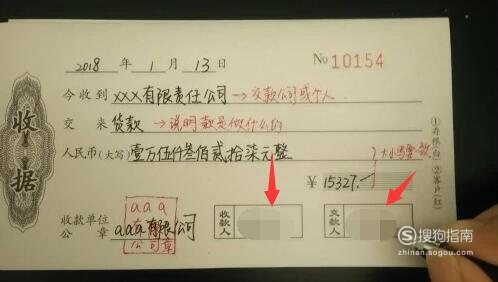 2018 年 1 月 13 日 No 10154
今收到 XXX有限责任公司 →交款公司或个人
交来 货款 →说明款是做什么的
人民币(大写) 壹万伍仟叁佰贰拾柒元整
大小写要一致
¥ 15327.-
收款单位
公章
aaa有限公司
aaa
公司章
收款人
交款人
收据
①存根(白) ②客户(红)
搜狗指南
zhinan.sogou.com